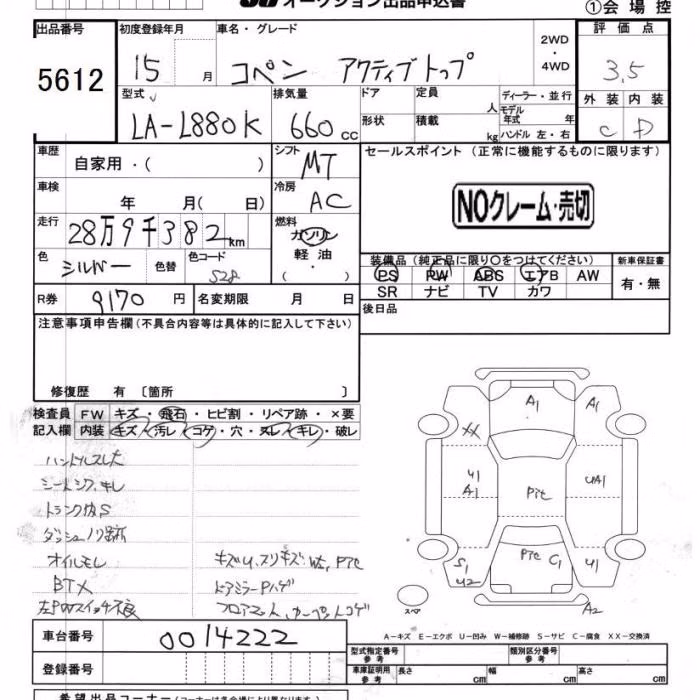 オークション出品申込書
①会場控
出品番号
5612
初度登録年月
15 月
車名・グレード
コペン アクティブトップ
2WD
・
4WD
評価点
3,5
外装 内装
C D
型式
LA-L880K
排気量
660 cc
ドア
形状
定員 人
積載 kg
ディーラー・並行
モデル
年式 年
ハンドル 左・右
車歴
自家用・( )
シフト
MT
セールスポイント (正常に機能するものに限ります)
NOクレーム・売切
車検
年 月( 日)
冷房
AC
走行
28万9千382km
燃料
ガソリン
軽油
( ・ )
色
シルバー
色替
色コード
S28
装備品 (純正品に限り○をつけてください)
PS PW ABS エアB AW
SR ナビ TV カワ
新車保証書
有・無
R券
9170 円
名変期限 月 日
後日品
注意事項申告欄(不具合内容等は具体的に記入して下さい)
修復歴 有 〔箇所 〕
検査員
記入欄
FW キズ・飛石・ヒビ割・リペア跡・×要
内装 キズ・汚レ・コゲ・穴・スレ・キレ・破レ
ハンドルスレ大
シートシワ、キレ
オイルモレ
BTX
左PWスイッチ不良
ドアミラーPハゲ
フロアマット、カーペットコゲ
A1
A1
XX
U1
A1
Pite
UA1
Pite
C1
S1
U2
U1
A2
スペア
A-キズ E-エクボ U-凹み W-補修跡 S-サビ C-腐食 XX-交換済
車台番号
0014222
登録番号
型式指定番号
参考
類別区分番号
参考
車庫証明用
参考
長さ cm
幅 cm
高さ cm
希望出品コーナー